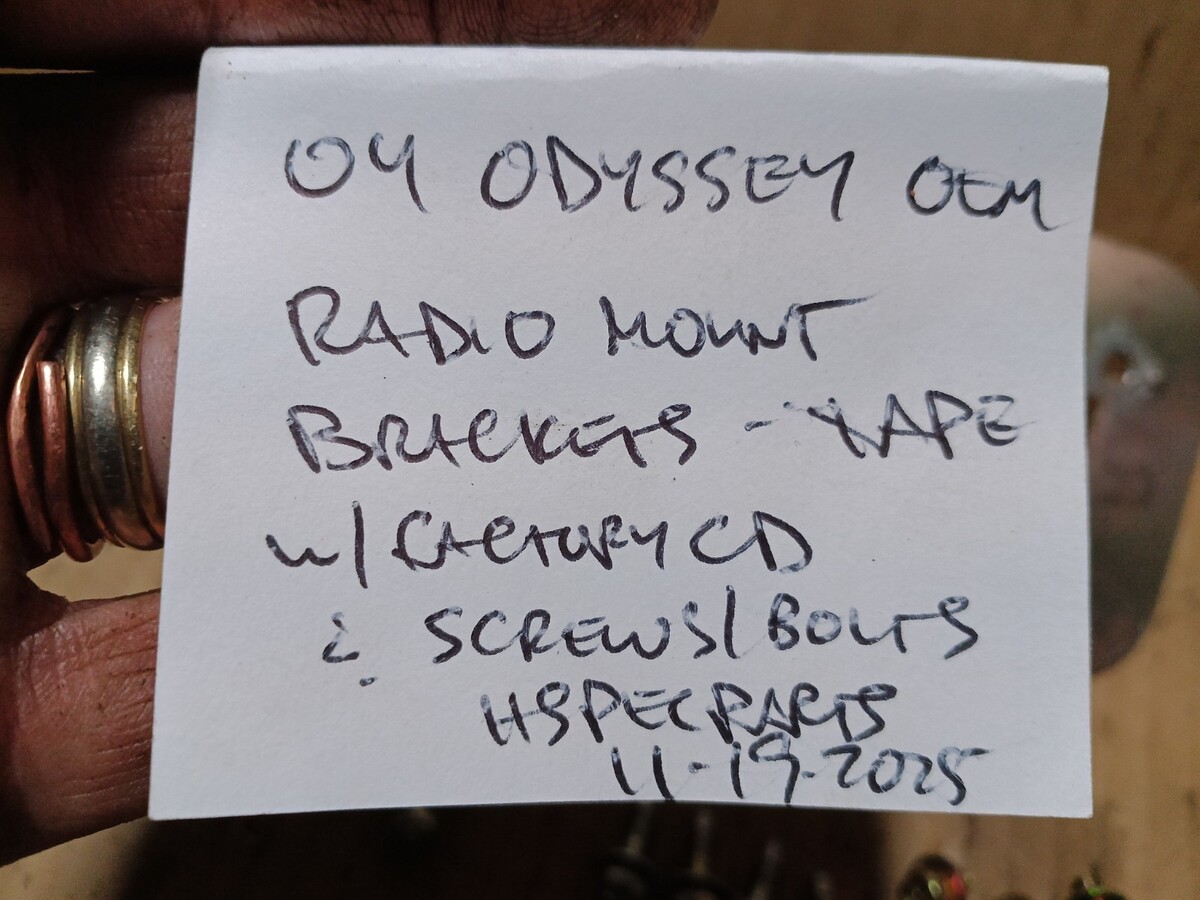 04 ODYSSEY OEM
RADIO MOUNT
BRACKETS - TAPE
w/ FACTORY CD
& SCREWS/BOLTS
HSPECPARTS
11-19-2025